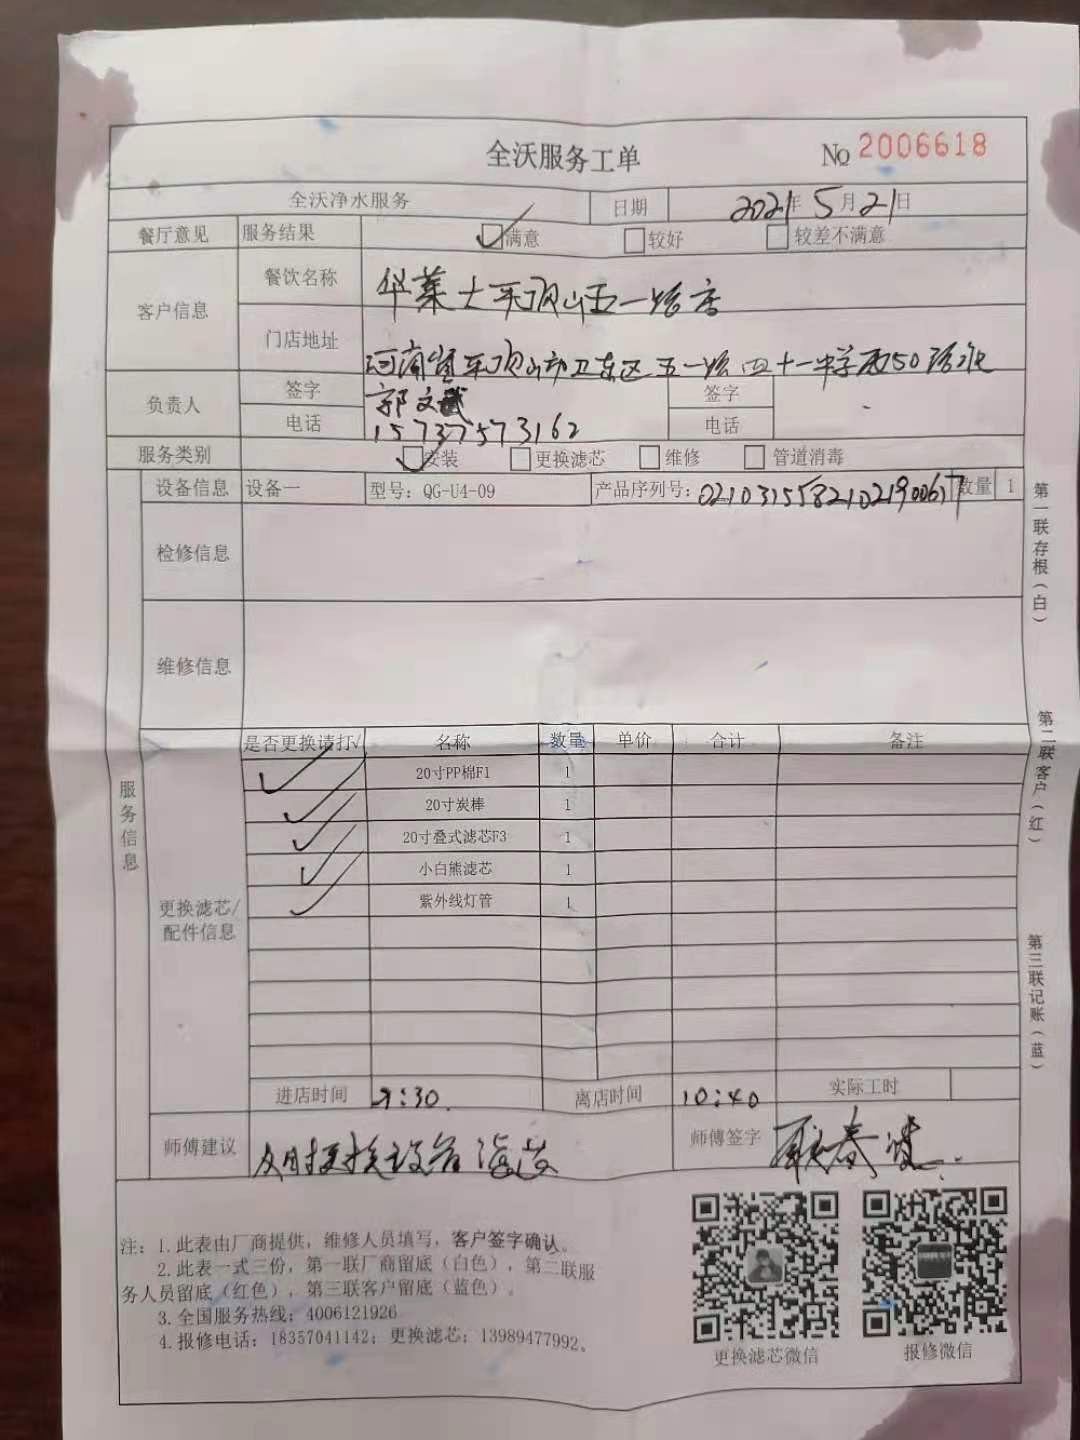 全沃服务工单 No 2006618
全沃净水服务 日期 2021年5月21日
餐厅意见 服务结果 ✓满意 □较好 □较差不满意
客户信息 餐饮名称 华莱士平顶山五一路店
门店地址 河南省平顶山市卫东区五一路四十一中学西50路北
负责人 签字 郭文武 签字
电话 15737573162 电话
服务类别 ✓安装 □更换滤芯 □维修 □管道消毒
设备信息 设备一 型号: QG-U4-09 产品序列号: 数量 1
检修信息
维修信息
服务信息
是否更换请打√ 名称 数量 单价 合计 备注
✓ 20寸PP棉F1 1
✓ 20寸炭棒 1
✓ 20寸叠式滤芯F3 1
✓ 小白熊滤芯 1
✓ 紫外线灯管 1
更换滤芯/
配件信息
进店时间 9:30 离店时间 10:40 实际工时
师傅建议 及时更换设备滤芯 师傅签字
注: 1.此表由厂商提供，维修人员填写，客户签字确认。
2.此表一式三份，第一联厂商留底（白色），第二联服
务人员留底（红色），第三联客户留底（蓝色）。
3.全国服务热线: 4006121926
4.报修电话: 18357041142; 更换滤芯: 13989477992。
更换滤芯微信 报修微信
第一联存根（白）
第二联客户（红）
第三联记账（蓝）